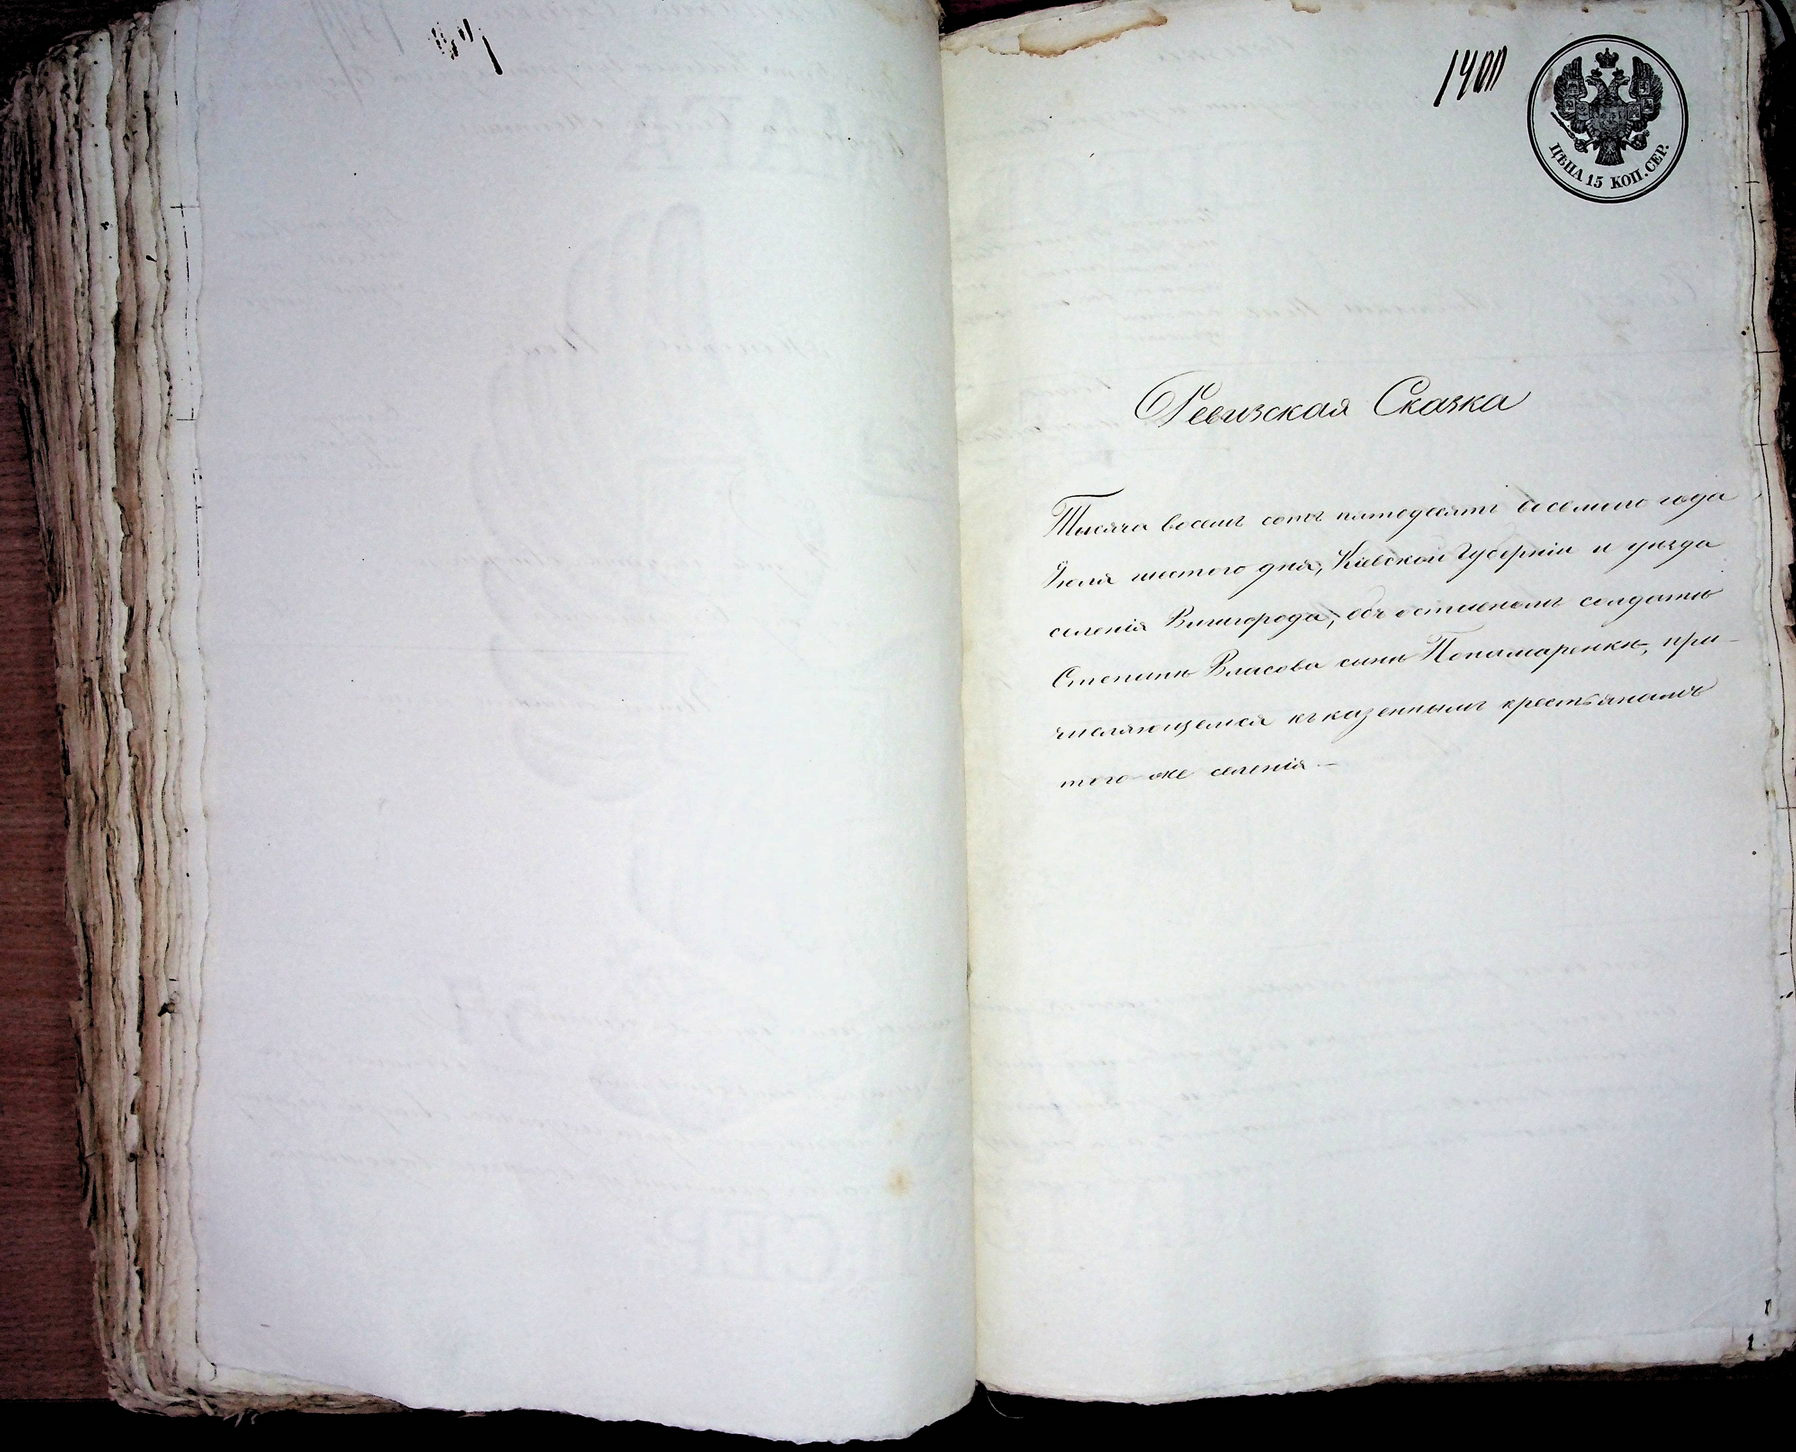 1400
ЦѢНА 15 КОП. СЕР.
Ревизская Сказка
Тысяча восемь сотъ пятьдесятъ восьмого года
Іюля шестого дня, Кіевской Губерніи и уѣзда
селенія Вышгорода, объ отставномъ солдатѣ
Степанѣ Власова сынѣ Пономаренкѣ, при-
числяющемся къ казеннымъ крестьянамъ
того-же селенія.—